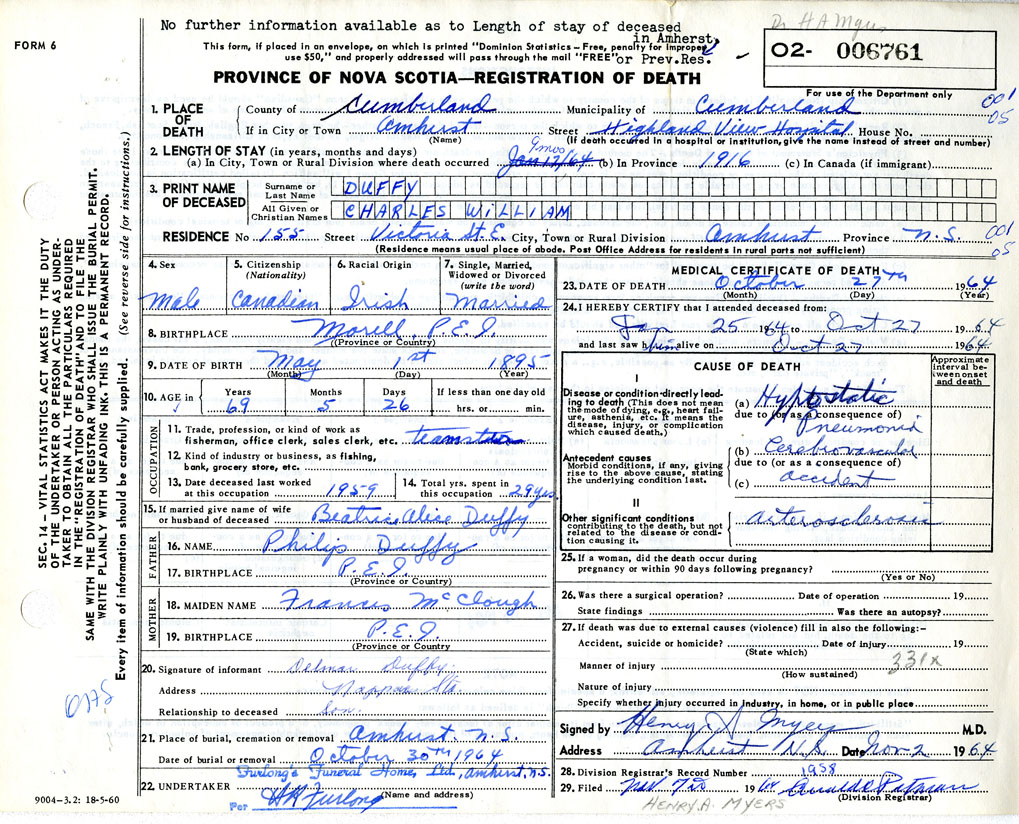 No further information available as to Length of stay of deceased
in Amherst.
or Prev.Res.
Dr H A Myers
FORM 6
This form, if placed in an envelope, on which is printed "Dominion Statistics – Free, penalty for improper
use $50," and properly addressed will pass through the mail "FREE"
02- 006761
For use of the Department only
PROVINCE OF NOVA SCOTIA—REGISTRATION OF DEATH
001
05
1. PLACE OF DEATH County of Cumberland Municipality of Cumberland
If in City or Town Amhurst (Name) Street Highland View Hospital House No.
(If death occurred in a hospital or institution, give the name instead of street and number)
2. LENGTH OF STAY (in years, months and days) 9 mos
(a) In City, Town or Rural Division where death occurred Jan 12/64 (b) In Province 1916 (c) In Canada (if immigrant)
3. PRINT NAME OF DECEASED Surname or Last Name DUFFY
All Given or Christian Names CHARLES WILLIAM
RESIDENCE No 155 Street Victoria St. E. City, Town or Rural Division Amhurst Province N.S.
001
05
(Residence means usual place of abode. Post Office Address for residents in rural parts not sufficient)
4. Sex Male
5. Citizenship (Nationality) Canadian
6. Racial Origin Irish
7. Single, Married, Widowed or Divorced (write the word) Married
8. BIRTHPLACE Morell, P.E.I.
(Province or Country)
9. DATE OF BIRTH May 1st 1895
(Month) (Day) (Year)
10. AGE in Years 69 Months 5 Days 26 If less than one day old hrs. or min.
OCCUPATION
11. Trade, profession, or kind of work as
fisherman, office clerk, sales clerk, etc. teamster
12. Kind of industry or business, as fishing,
bank, grocery store, etc.
13. Date deceased last worked at this occupation 1959
14. Total yrs. spent in this occupation 29 yrs.
15. If married give name of wife
or husband of deceased Beatrice Alice Duffy
FATHER
16. NAME Philip Duffy
17. BIRTHPLACE P.E.I.
(Province or Country)
MOTHER
18. MAIDEN NAME Frances McClough
19. BIRTHPLACE P.E.I.
(Province or Country)
20. Signature of informant Delmar Duffy
Address Nappan Sta.
Relationship to deceased Son.
21. Place of burial, cremation or removal Amhurst. N.S.
Date of burial or removal October 30TH 1964
Furlong's Funeral Home, Ltd., Amherst, N.S.
22. UNDERTAKER (Name and address)
Per H A Furlong
9004-3.2: 18-5-60
MEDICAL CERTIFICATE OF DEATH
23. DATE OF DEATH October 27th 1964
(Month) (Day) (Year)
24. I HEREBY CERTIFY that I attended deceased from:
Jan 25 1964 to Oct 27 1964
and last saw him alive on Oct 27 1964
CAUSE OF DEATH
Approximate interval between onset and death
I
Disease or condition directly leading to death (This does not mean the mode of dying, e.g., heart failure, asthenia, etc. It means the disease, injury, or complication which caused death.)
(a) Hypostatic
due to (or as a consequence of)
Pneumonia
Antecedent causes
Morbid conditions, if any, giving rise to the above cause, stating the underlying condition last.
(b) Cerebrovascular
due to (or as a consequence of)
(c) accident
II
Other significant conditions contributing to the death, but not related to the disease or condition causing it.
Arteriosclerosis
25. If a woman, did the death occur during
pregnancy or within 90 days following pregnancy?
(Yes or No)
26. Was there a surgical operation? Date of operation 19
State findings Was there an autopsy?
27. If death was due to external causes (violence) fill in also the following:–
Accident, suicide or homicide? Date of injury 19
(State which)
331x
Manner of injury
(How sustained)
Nature of injury
Specify whether injury occurred in industry, in home, or in public place
Signed by Henry A Myers M.D.
Address Amhurst N.S. Date Nov 2 1964
28. Division Registrar's Record Number 1958
29. Filed Nov 1964
(Division Registrar)
HENRY A. MYERS
SEC. 14 – VITAL STATISTICS ACT MAKES IT THE DUTY
OF THE UNDERTAKER OR PERSON ACTING AS UNDER-
TAKER TO OBTAIN ALL THE PARTICULARS REQUIRED
IN THE "REGISTRATION OF DEATH" AND TO FILE THE
SAME WITH THE DIVISION REGISTRAR WHO SHALL ISSUE THE BURIAL PERMIT.
WRITE PLAINLY WITH UNFADING INK. THIS IS A PERMANENT RECORD.
Every item of information should be carefully supplied. (See reverse side for instructions.)